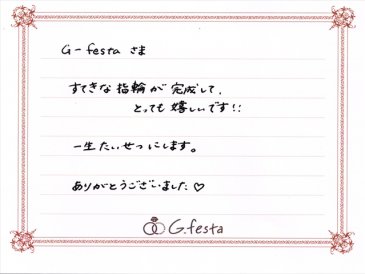 G-festa さま
すてきな指輪が完成して、
とっても嬉しいです!!
一生たいせつにします。
ありがとうございました♡
G.festa